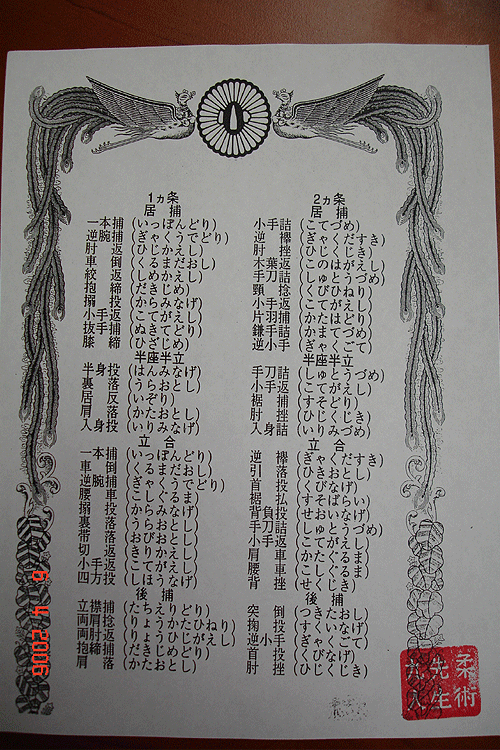 1ヵ条
居捕
一本捕(いっぽんどり)
逆腕捕(ぎゃくうでどり)
肘返(ひじかえし)
車倒(くるまだおし)
絞返(しめかえし)
抱締(だきじめ)
搦投(からみなげ)
小手返(こてがえし)
抜手捕(ぬきてどり)
膝締(ひざじめ)
半座半立
半身投(はんみなげ)
裏落(うらおとし)
居反(いぞり)
肩落(かたおとし)
入身投(いりみなげ)
立合
一本捕(いっぽんどり)
車倒(くるまだおし)
逆腕捕(ぎゃくうでどり)
腰車(こしぐるま)
搦投(からみなげ)
裏落(うらおとし)
帯落(おびおとし)
切返(きりかえし)
小手返(こてがえし)
四方投(しほうなげ)
後捕
立襟捕(たちえりどり)
両肩捻(りょうかたひねり)
両肘返(りょうひじがえし)
抱締(だきじめ)
肩落(かたおとし)
2ヵ条
居捕
小手詰(こてづめ)
逆襷(ぎゃくだすき)
肘挫(ひじくじき)
木葉返(このはがえし)
手刀詰(しゅとうづめ)
頸捻(くびひねり)
小手投(こてなげ)
片羽捕(かたはどり)
鎌手詰(かまてづめ)
逆小手(ぎゃくこて)
半座半立
手刀詰(しゅとうづめ)
小手返(こてがえし)
裾捕(すそどり)
肘挫(ひじくじき)
入身詰(いりみづめ)
立合
逆襷(ぎゃくだすき)
引落(ひきおとし)
首投(くびなげ)
裾払(すそばらい)
背負投(せおいなげ)
手刀詰(しゅとうづめ)
小手返(こてがえし)
肩車(かたぐるま)
腰車(こしぐるま)
背挫(せくじき)
後捕
突倒(つきたおし)
掬投(すくいなげ)
逆小手(ぎゃくこて)
首投(くびなげ)
肘挫(ひじくじき)
柔術
先生
6 4 2006